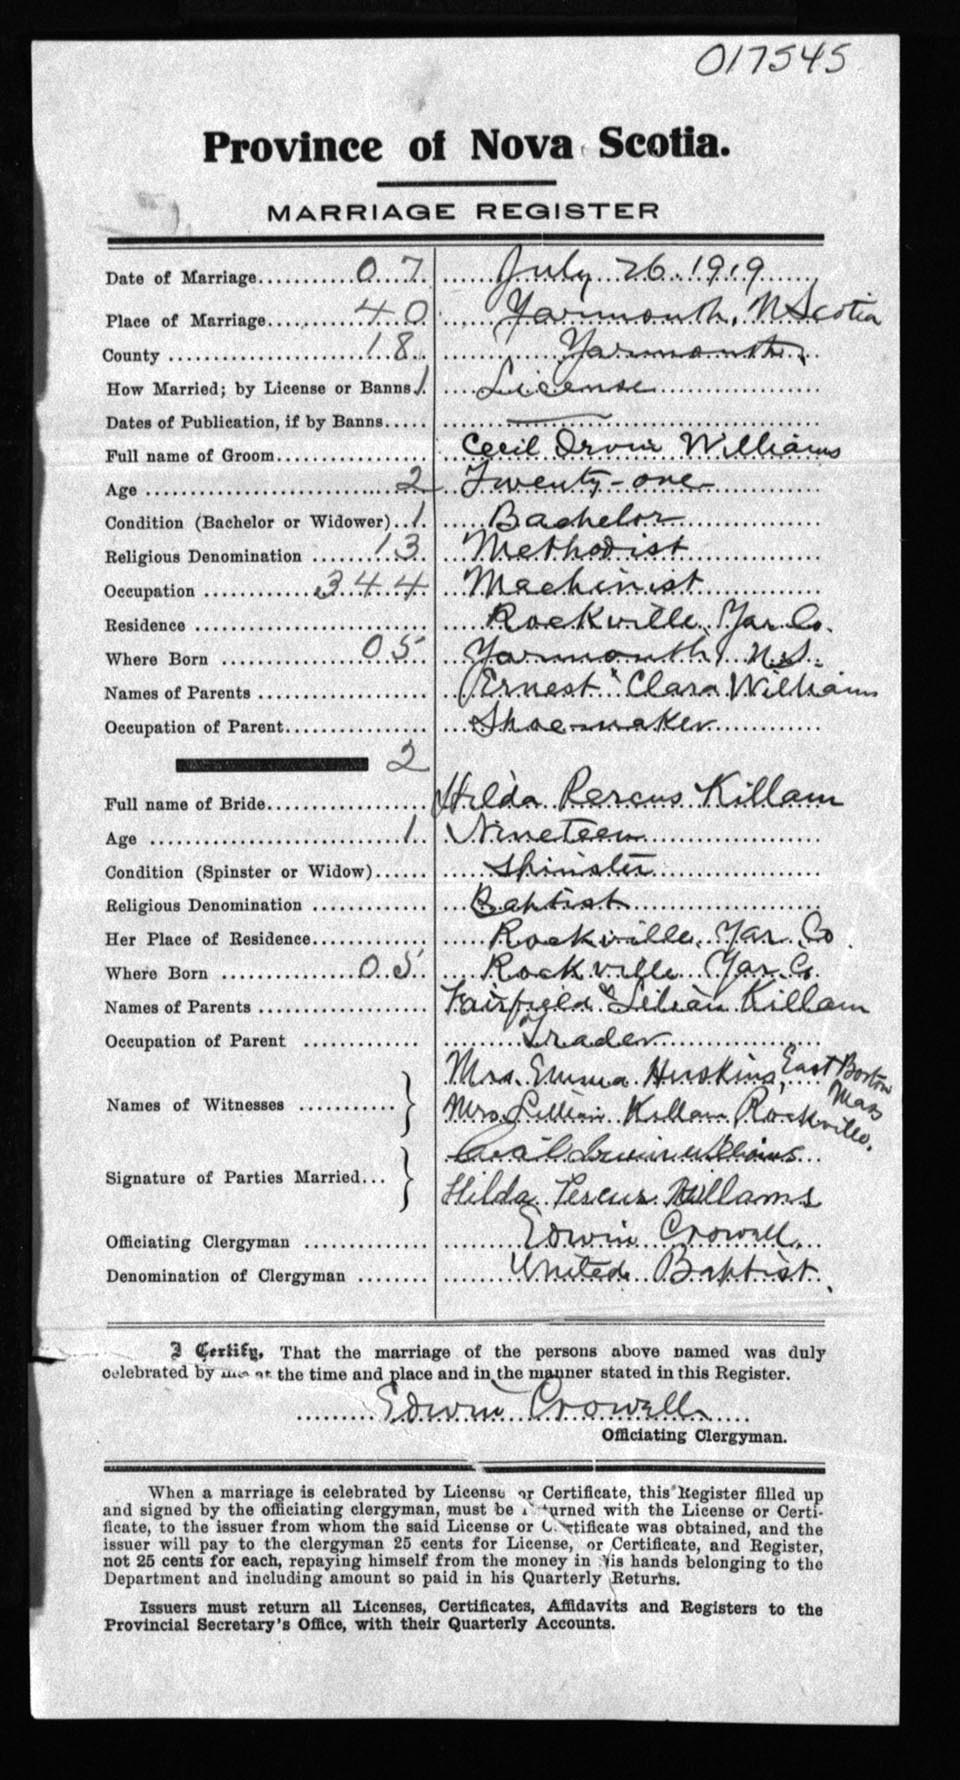 017545
Province of Nova Scotia.
MARRIAGE REGISTER
Date of Marriage............0 7. July 26 1919
Place of Marriage............40 Yarmouth, N Scotia
County ............18. Yarmouth,
How Married; by License or Banns.1. License
Dates of Publication, if by Banns.....
Full name of Groom............ Cecil Irvin Williams
Age ............2 Twenty-one
Condition (Bachelor or Widower)..1. Bachelor
Religious Denomination .......13. Methodist
Occupation ............344 Machinist
Residence ............ Rockville, Yar Co.
Where Born ............05. Yarmouth, N.S.
Names of Parents ............ Ernest & Clara Williams
Occupation of Parent............ Shoe-maker
2
Full name of Bride............ Hilda Percus Killam
Age ............1. Nineteen
Condition (Spinster or Widow)...... Spinster
Religious Denomination ............ Baptist
Her Place of Residence............ Rockville, Yar Co.
Where Born ............05. Rockville Yar. Co.
Names of Parents ............ Fairfield & Lilian Killam
Occupation of Parent ............ Trader
Names of Witnesses ........... } Mrs. Emma Huskins, East Boston Mass
Mrs Lillian Killam Rockville.
Signature of Parties Married... } Cecil Irvin Williams
Hilda Percus Williams
Officiating Clergyman ............ Edwin Crowell,
Denomination of Clergyman ........ United Baptist.
I Certify, That the marriage of the persons above named was duly
celebrated by me at the time and place and in the manner stated in this Register.
Edwin Crowell
Officiating Clergyman.
When a marriage is celebrated by License or Certificate, this Register filled up
and signed by the officiating clergyman, must be returned with the License or Certi-
ficate, to the issuer from whom the said License or Certificate was obtained, and the
issuer will pay to the clergyman 25 cents for License, or Certificate, and Register,
not 25 cents for each, repaying himself from the money in his hands belonging to the
Department and including amount so paid in his Quarterly Returns.
Issuers must return all Licenses, Certificates, Affidavits and Registers to the
Provincial Secretary's Office, with their Quarterly Accounts.